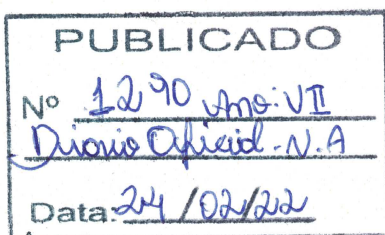 PUBLICADO
Nº 1290 Ano: VII
Diario Oficial - N.A
Data: 24/02/22